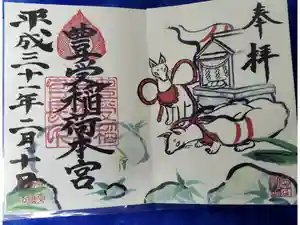 奉拝
豊受稲荷本宮
平成三十一年二月十一日